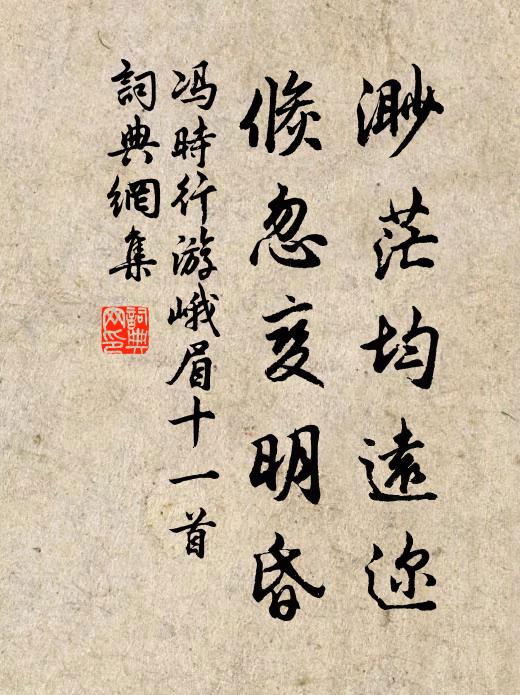 渺茫均遠迩
倏忽变明昏
冯時行游峨眉十一首
詞典網集
詞典网印